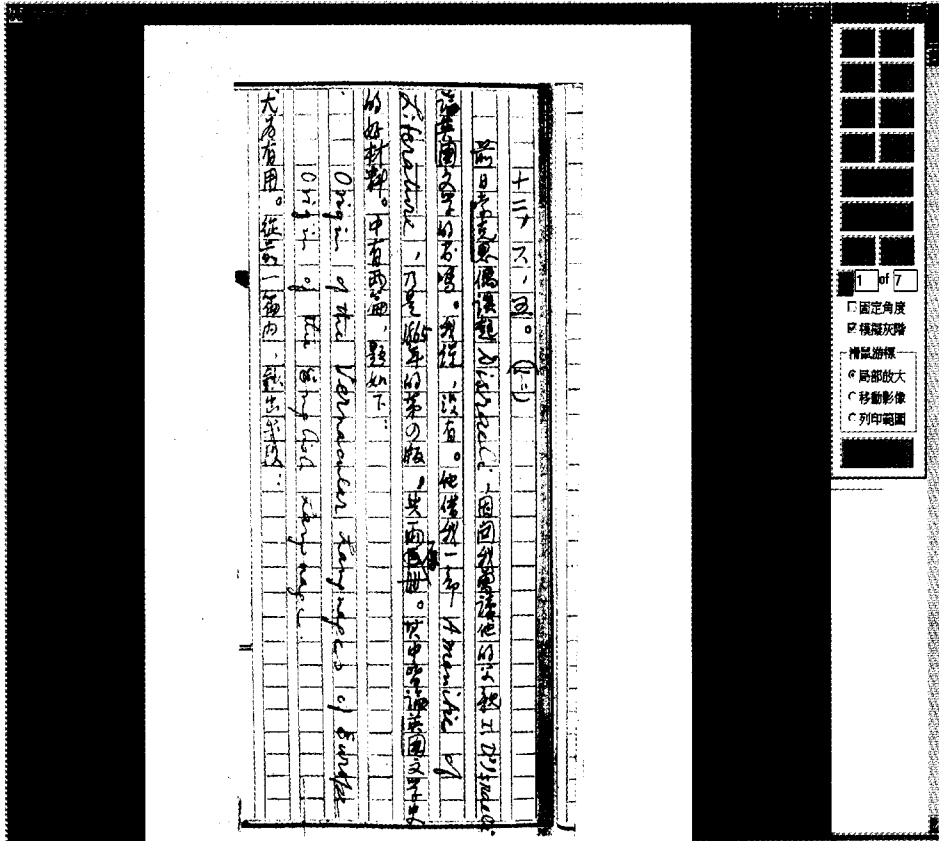 十二、六、五。(二)
前日偶談起 Disraeli,因問我曾讀他的父親 I. D'Israeli
論英國文學的書嗎。我說,沒有。他借我一部 Amenitie of
Literature,乃是1865年的第四版,共兩冊。其中皆論英國文學史
的好材料。中有两篇,題如下:
Origin of the Vernacular Languages of Europe
Origin of the English Language
大为有用。從前一篇内,鈔出半段:
1 of 7
固定角度
模擬灰階
滑鼠游標
局部放大
移動影像
列印範圍